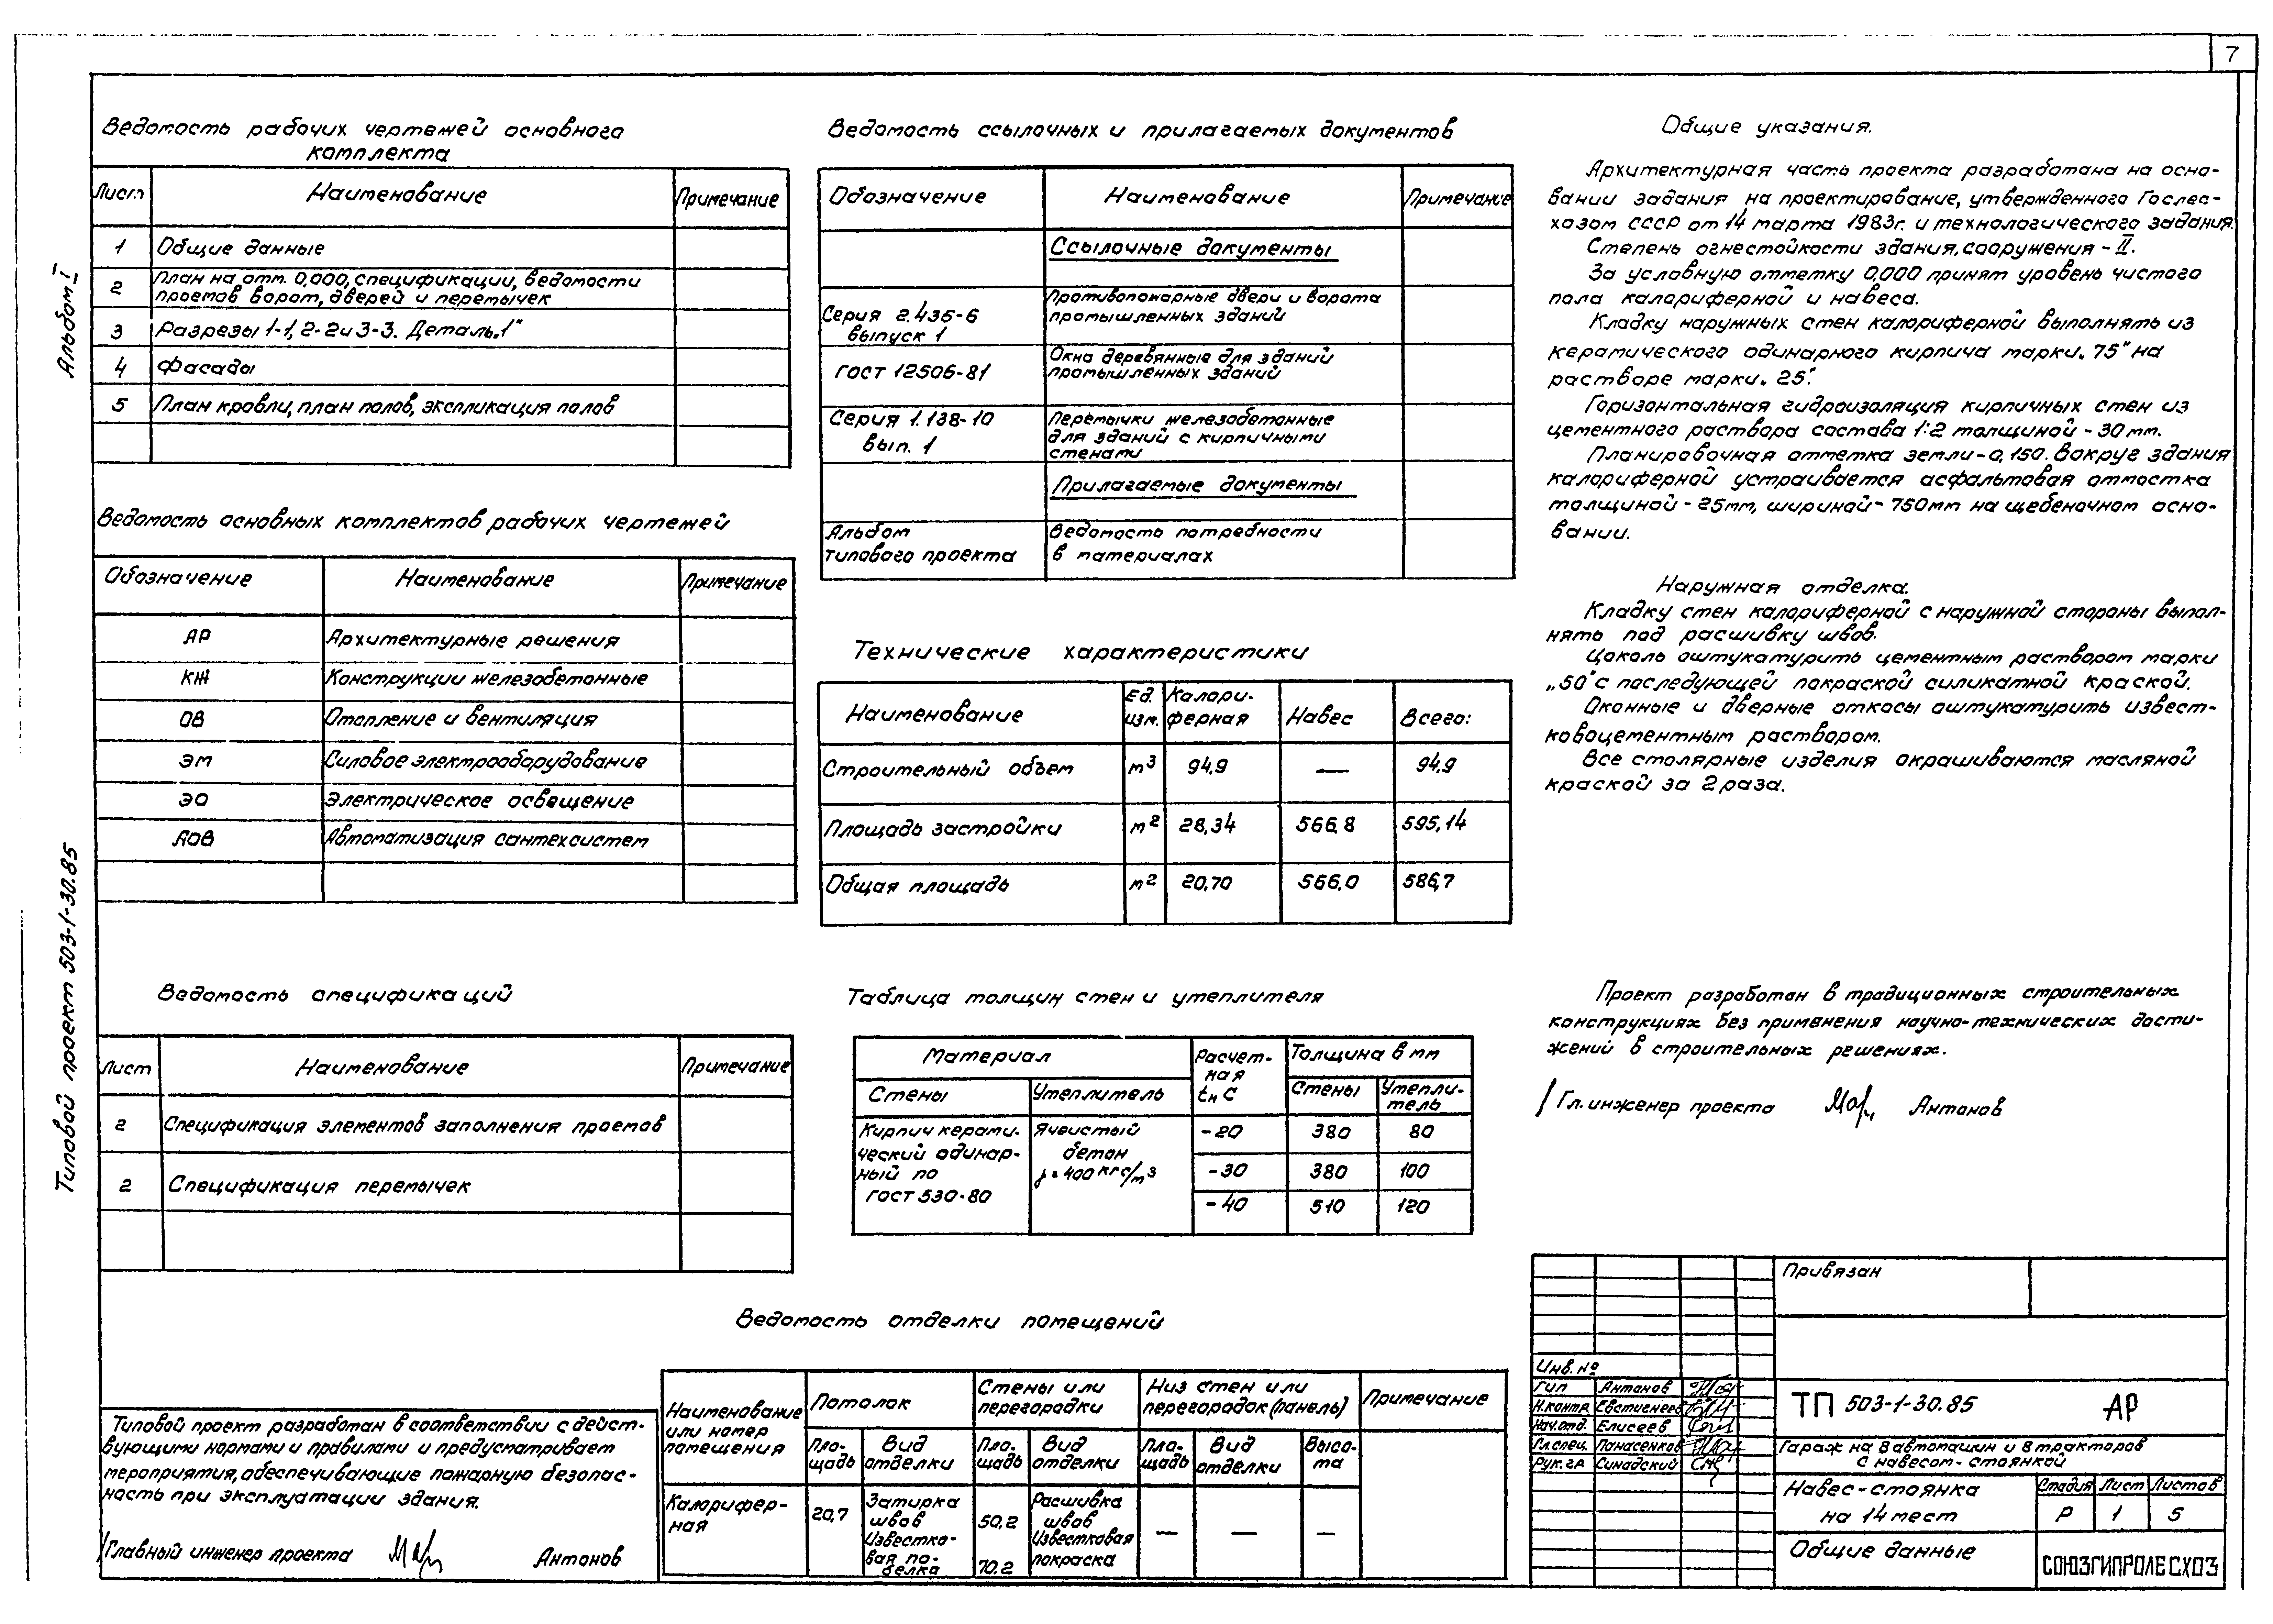 7
Альбом I
Типовой проект 503-1-30.85
Ведомость рабочих чертежей основного
комплекта
Лист Наименование Примечание
1 Общие данные
2 План на отм. 0,000, спецификации, ведомости
проемов ворот, дверей и перемычек
3 Разрезы 1-1, 2-2 и 3-3. Деталь „1"
4 Фасады
5 План кровли, план полов, экспликация полов
Ведомость основных комплектов рабочих чертежей
Обозначение Наименование Примечание
АР Архитектурные решения
КЖ Конструкции железобетонные
ОВ Отопление и вентиляция
ЭМ Силовое электрооборудование
ЭО Электрическое освещение
АОВ Автоматизация сантехсистем
Ведомость спецификаций
Лист Наименование Примечание
2 Спецификация элементов заполнения проемов
2 Спецификация перемычек
Типовой проект разработан в соответствии с дейст-
вующими нормами и правилами и предусматривает
мероприятия, обеспечивающие пожарную безопас-
ность при эксплуатации здания.
Главный инженер проекта Антонов
Ведомость ссылочных и прилагаемых документов
Обозначение Наименование Примечание
Ссылочные документы
Серия 2.436-6
выпуск 1
Противопожарные двери и ворота
промышленных зданий
ГОСТ 12506-81
Окна деревянные для зданий
промышленных зданий
Серия 1.138-10
вып. 1
Перемычки железобетонные
для зданий с кирпичными
стенами
Прилагаемые документы
Альбом
типового проекта
Ведомость потребности
в материалах
Технические характеристики
Наименование
Ед.
изм.
Калори-
ферная
Навес Всего:
Строительный объем м³ 94,9 — 94,9
Площадь застройки м² 28,34 566,8 595,14
Общая площадь м² 20,70 566,0 586,7
Таблица толщин стен и утеплителя
Материал
Расчет-
ная
tн С
Толщина в мм
Стены Утеплитель
Стены
Утепли-
тель
Кирпич керами-
ческий одинар-
ный по
ГОСТ 530-80
Ячеистый
бетон
γ=400 кгс/м³
-20 380 80
-30 380 100
-40 510 120
Ведомость отделки помещений
Наименование
или номер
помещения
Потолок
Стены или
перегородки
Низ стен или
перегородок (панель)
Примечание
Пло-
щадь
Вид
отделки
Пло-
щадь
Вид
отделки
Пло-
щадь
Вид
отделки
Высо-
та
Калорифер-
ная
20,7
Затирка
швов
Известко-
вая по-
белка
50.2
70.2
Расшивка
швов
Известковая
покраска
— — —
Общие указания.
Архитектурная часть проекта разработана на осно-
вании задания на проектирование, утвержденного Гослес-
хозом СССР от 14 марта 1983г. и технологического задания.
Степень огнестойкости здания, сооружения - II.
За условную отметку 0,000 принят уровень чистого
пола калориферной и навеса.
Кладку наружных стен калориферной выполнять из
керамического одинарного кирпича марки „75" на
растворе марки „25".
Горизонтальная гидроизоляция кирпичных стен из
цементного раствора состава 1:2 толщиной - 30 мм.
Планировочная отметка земли - 0,150. Вокруг здания
калориферной устраивается асфальтовая отмостка
толщиной - 25мм, шириной - 750мм на щебеночном осно-
вании.
Наружная отделка.
Кладку стен калориферной с наружной стороны выпол-
нять под расшивку швов.
Цоколь оштукатурить цементным раствором марки
„50" с последующей покраской силикатной краской.
Оконные и дверные откосы оштукатурить извест-
ковоцементным раствором.
Все столярные изделия окрашиваются масляной
краской за 2 раза.
Проект разработан в традиционных строительных
конструкциях без применения научно-технических дости-
жений в строительных решениях.
Гл. инженер проекта Антонов
Привязан
Инв. №
Гип Антонов
Н.контр. Евстигнеев
Нач.отд. Елисеев
Гл.спец. Панасенков
Рук.гр Синадский
ТП 503-1-30.85 АР
Гараж на 8 автомашин и 8 тракторов
с навесом-стоянкой
Навес-стоянка
на 14 мест
Стадия Лист Листов
Р 1 5
Общие данные
СОЮЗГИПРОЛЕСХОЗ